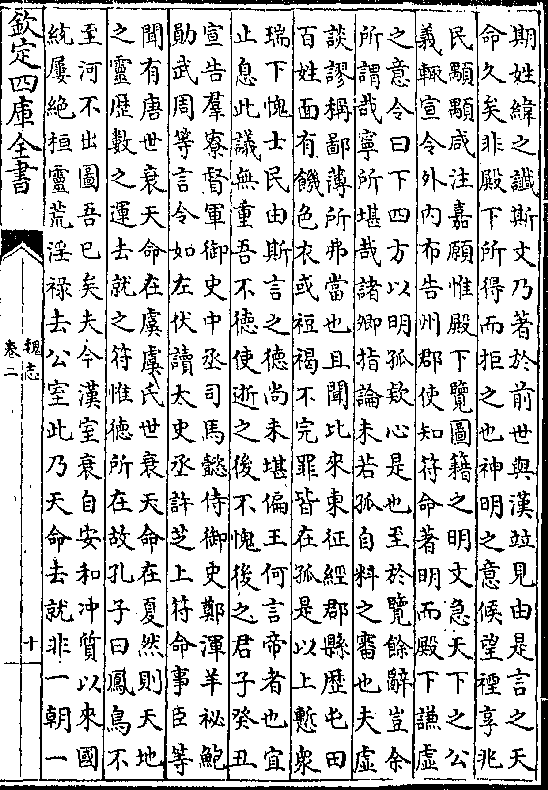 期姓緯之讖斯文乃著於前世與漢竝見由是言之天
命久矣非殿下所得而拒之也神明之意候望禋享兆
民顒顒咸注嘉願惟殿下覽圖籍之明文急天下之公
義輒宣令外内布告州郡使知符命著明而殿下謙虚
之意令曰下四方以明孤欵心是也至於覽餘辭豈余
所謂哉寧所堪哉諸卿指論未若孤自料之審也夫虚
談謬稱鄙薄所弗當也且聞比來東征經郡縣歴屯田
百姓面有饑色衣或裋褐不完罪皆在孤是以上慙衆
瑞下愧士民由斯言之德尚未堪偏王何言帝者也宜
止息此議無重吾不德使逝之後不愧後之君子癸丑
宣告羣寮督軍御史中丞司馬懿侍御史鄭渾羊祕鮑
勛武周等言令如左伏讀太史丞許芝上符命事臣等
聞有唐世衰天命在虞虞氏世衰天命在夏然則天地
之靈歴數之運去就之符惟德所在故孔子曰鳳鳥不
至河不出圖吾已矣夫今漢室衰自安和冲質以來國
統屢絶桓靈荒淫禄去公室此乃天命去就非一朝一
欽定四庫全書
魏志
卷二
十